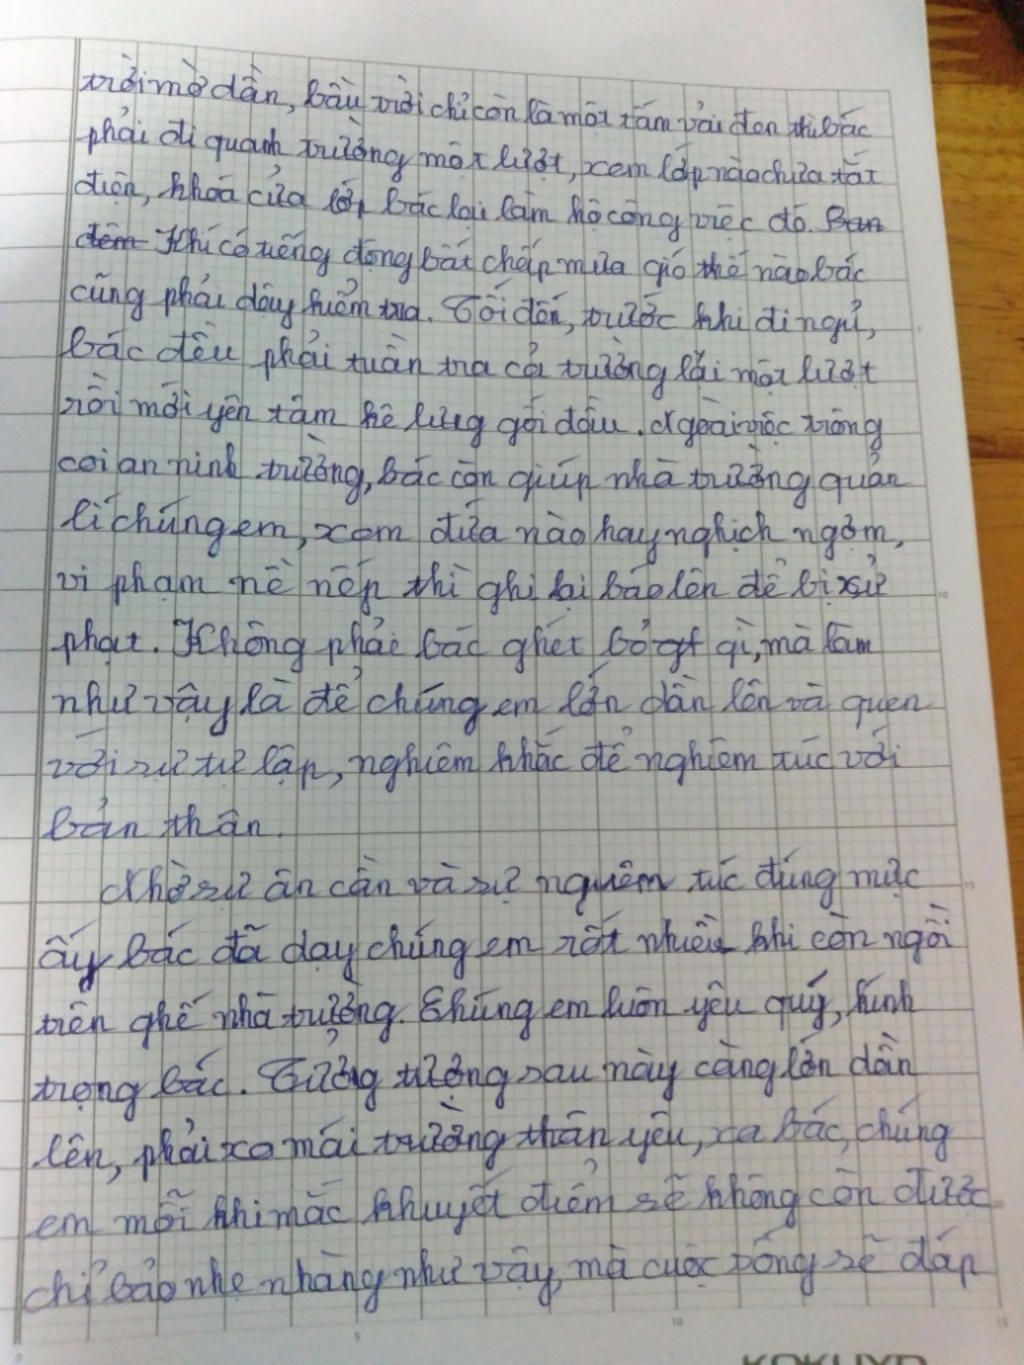 trời mờ dần, bầu trời chỉ còn là một tấm vải đen thì bác
phải đi quanh trường một lượt, xem lớp nào chưa tắt
điện, khoá cửa lớp bác lại làm hộ công việc đó. Ban
đêm Khi có tiếng động bất chấp mưa gió thế nào bác
cũng phải dậy kiểm tra. Tối đến, trước khi đi ngủ,
bác đều phải tuần tra cả trường lại một lượt
rồi mới yên tâm kê lưng gối đầu. Ngoài việc trông
coi an ninh trường, bác còn giúp nhà trường quản
lí chúng em, xem đứa nào hay nghịch ngợm,
vi phạm nề nếp thì ghi lại báo lên để bị xử
phạt. Không phải bác ghét bỏ gì, mà làm
như vậy là để chúng em lớn dần lên và quen
với sự tự lập, nghiêm khắc để nghiêm túc với
bản thân.
Nhờ sự ân cần và sự nghiêm túc đúng mực
ấy bác đã dạy chúng em rất nhiều khi còn ngồi
trên ghế nhà trường. Chúng em luôn yêu quý, kính
trọng bác. Tưởng tượng sau này càng lớn dần
lên, phải xa mái trường thân yêu, xa bác, chúng
em mỗi khi mắc khuyết điểm sẽ không còn được
chỉ bảo nhẹ nhàng như vậy, mà cuộc sống sẽ đáp
KOKUYO